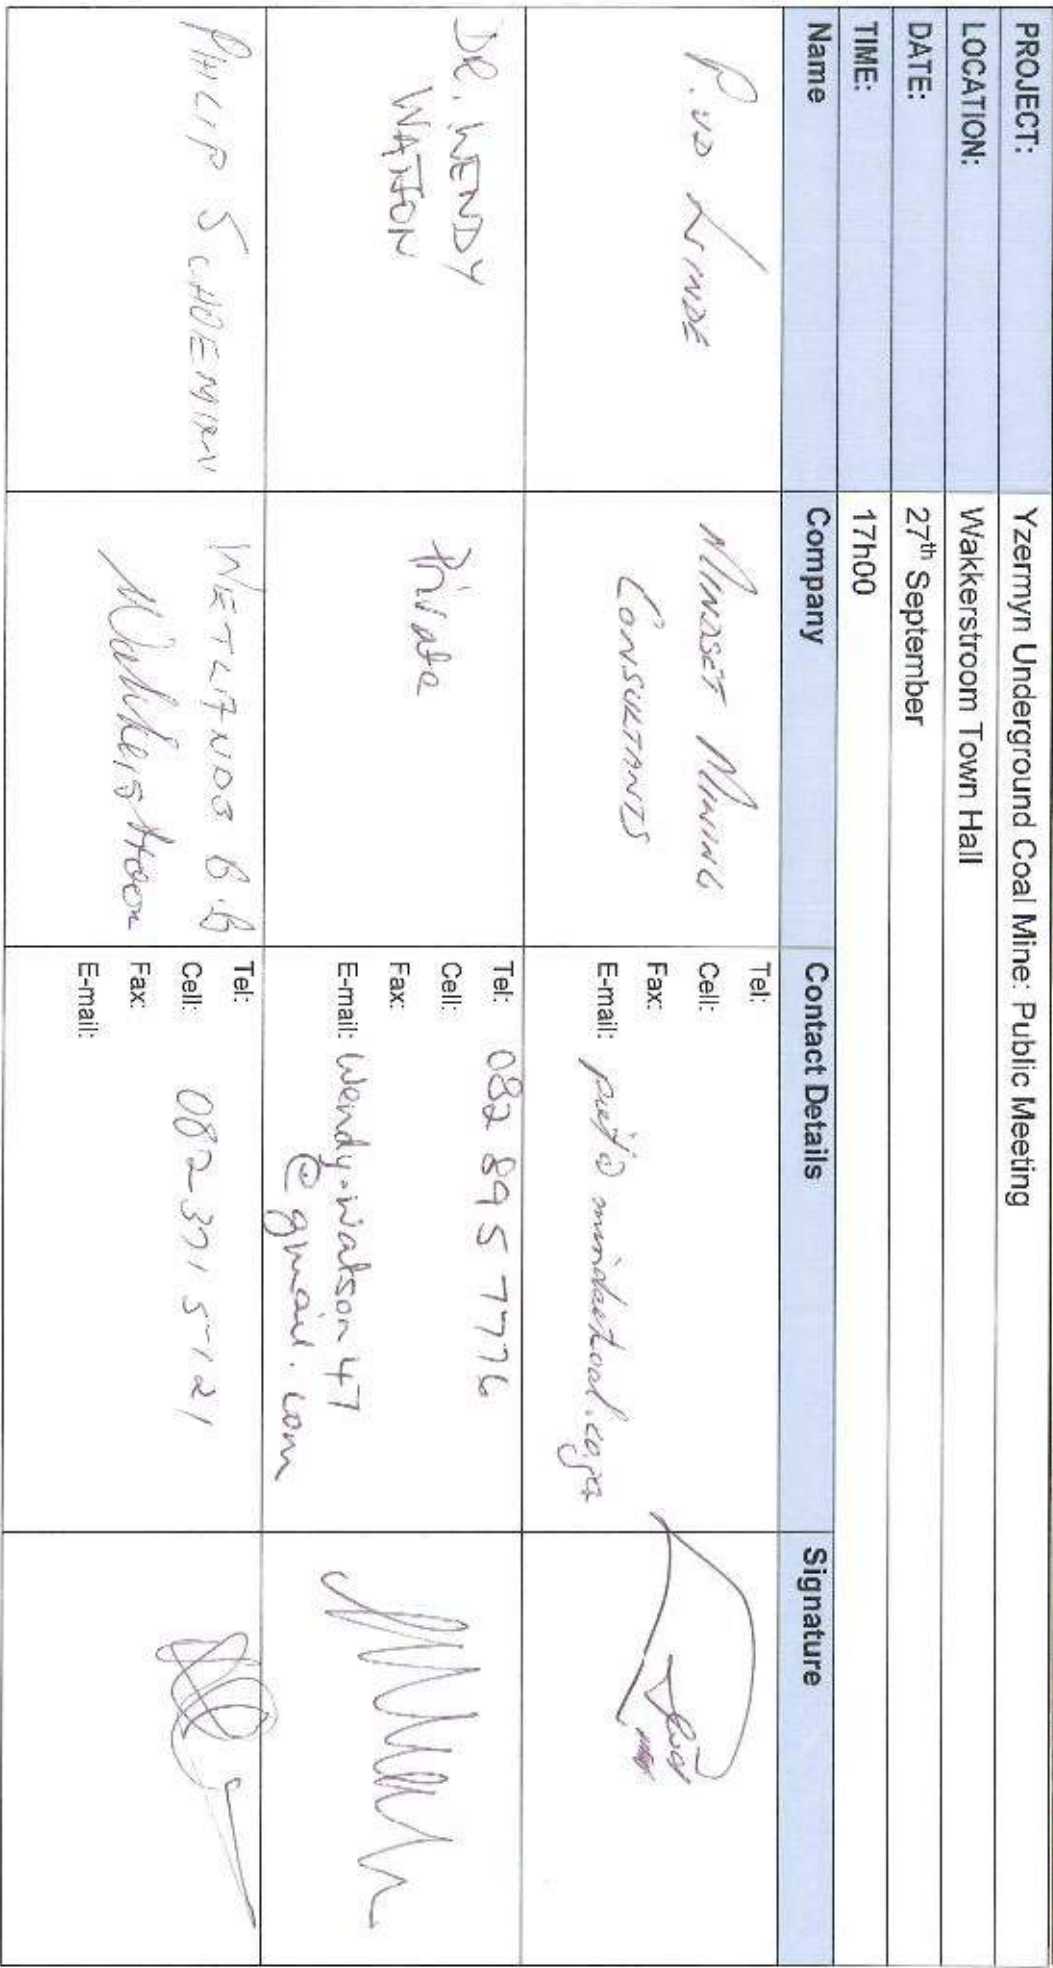 PROJECT: Yzermyn Underground Coal Mine: Public Meeting
LOCATION: Wakkerstroom Town Hall
DATE: 27th September
TIME: 17h00
Name Company Contact Details Signature
P. VD LINDE
MINDSET MINING
CONSULTANTS
Tel:
Cell:
Fax:
E-mail:
DR. WENDY
WATSON
Private
Tel: 082 895 7776
Cell:
Fax:
E-mail: Wendy.Watson47
@gmail.com
PHILIP SCHOEMAN
WETLANDS B.B
Wakkerstroom
Tel:
Cell: 082 371 5121
Fax:
E-mail: